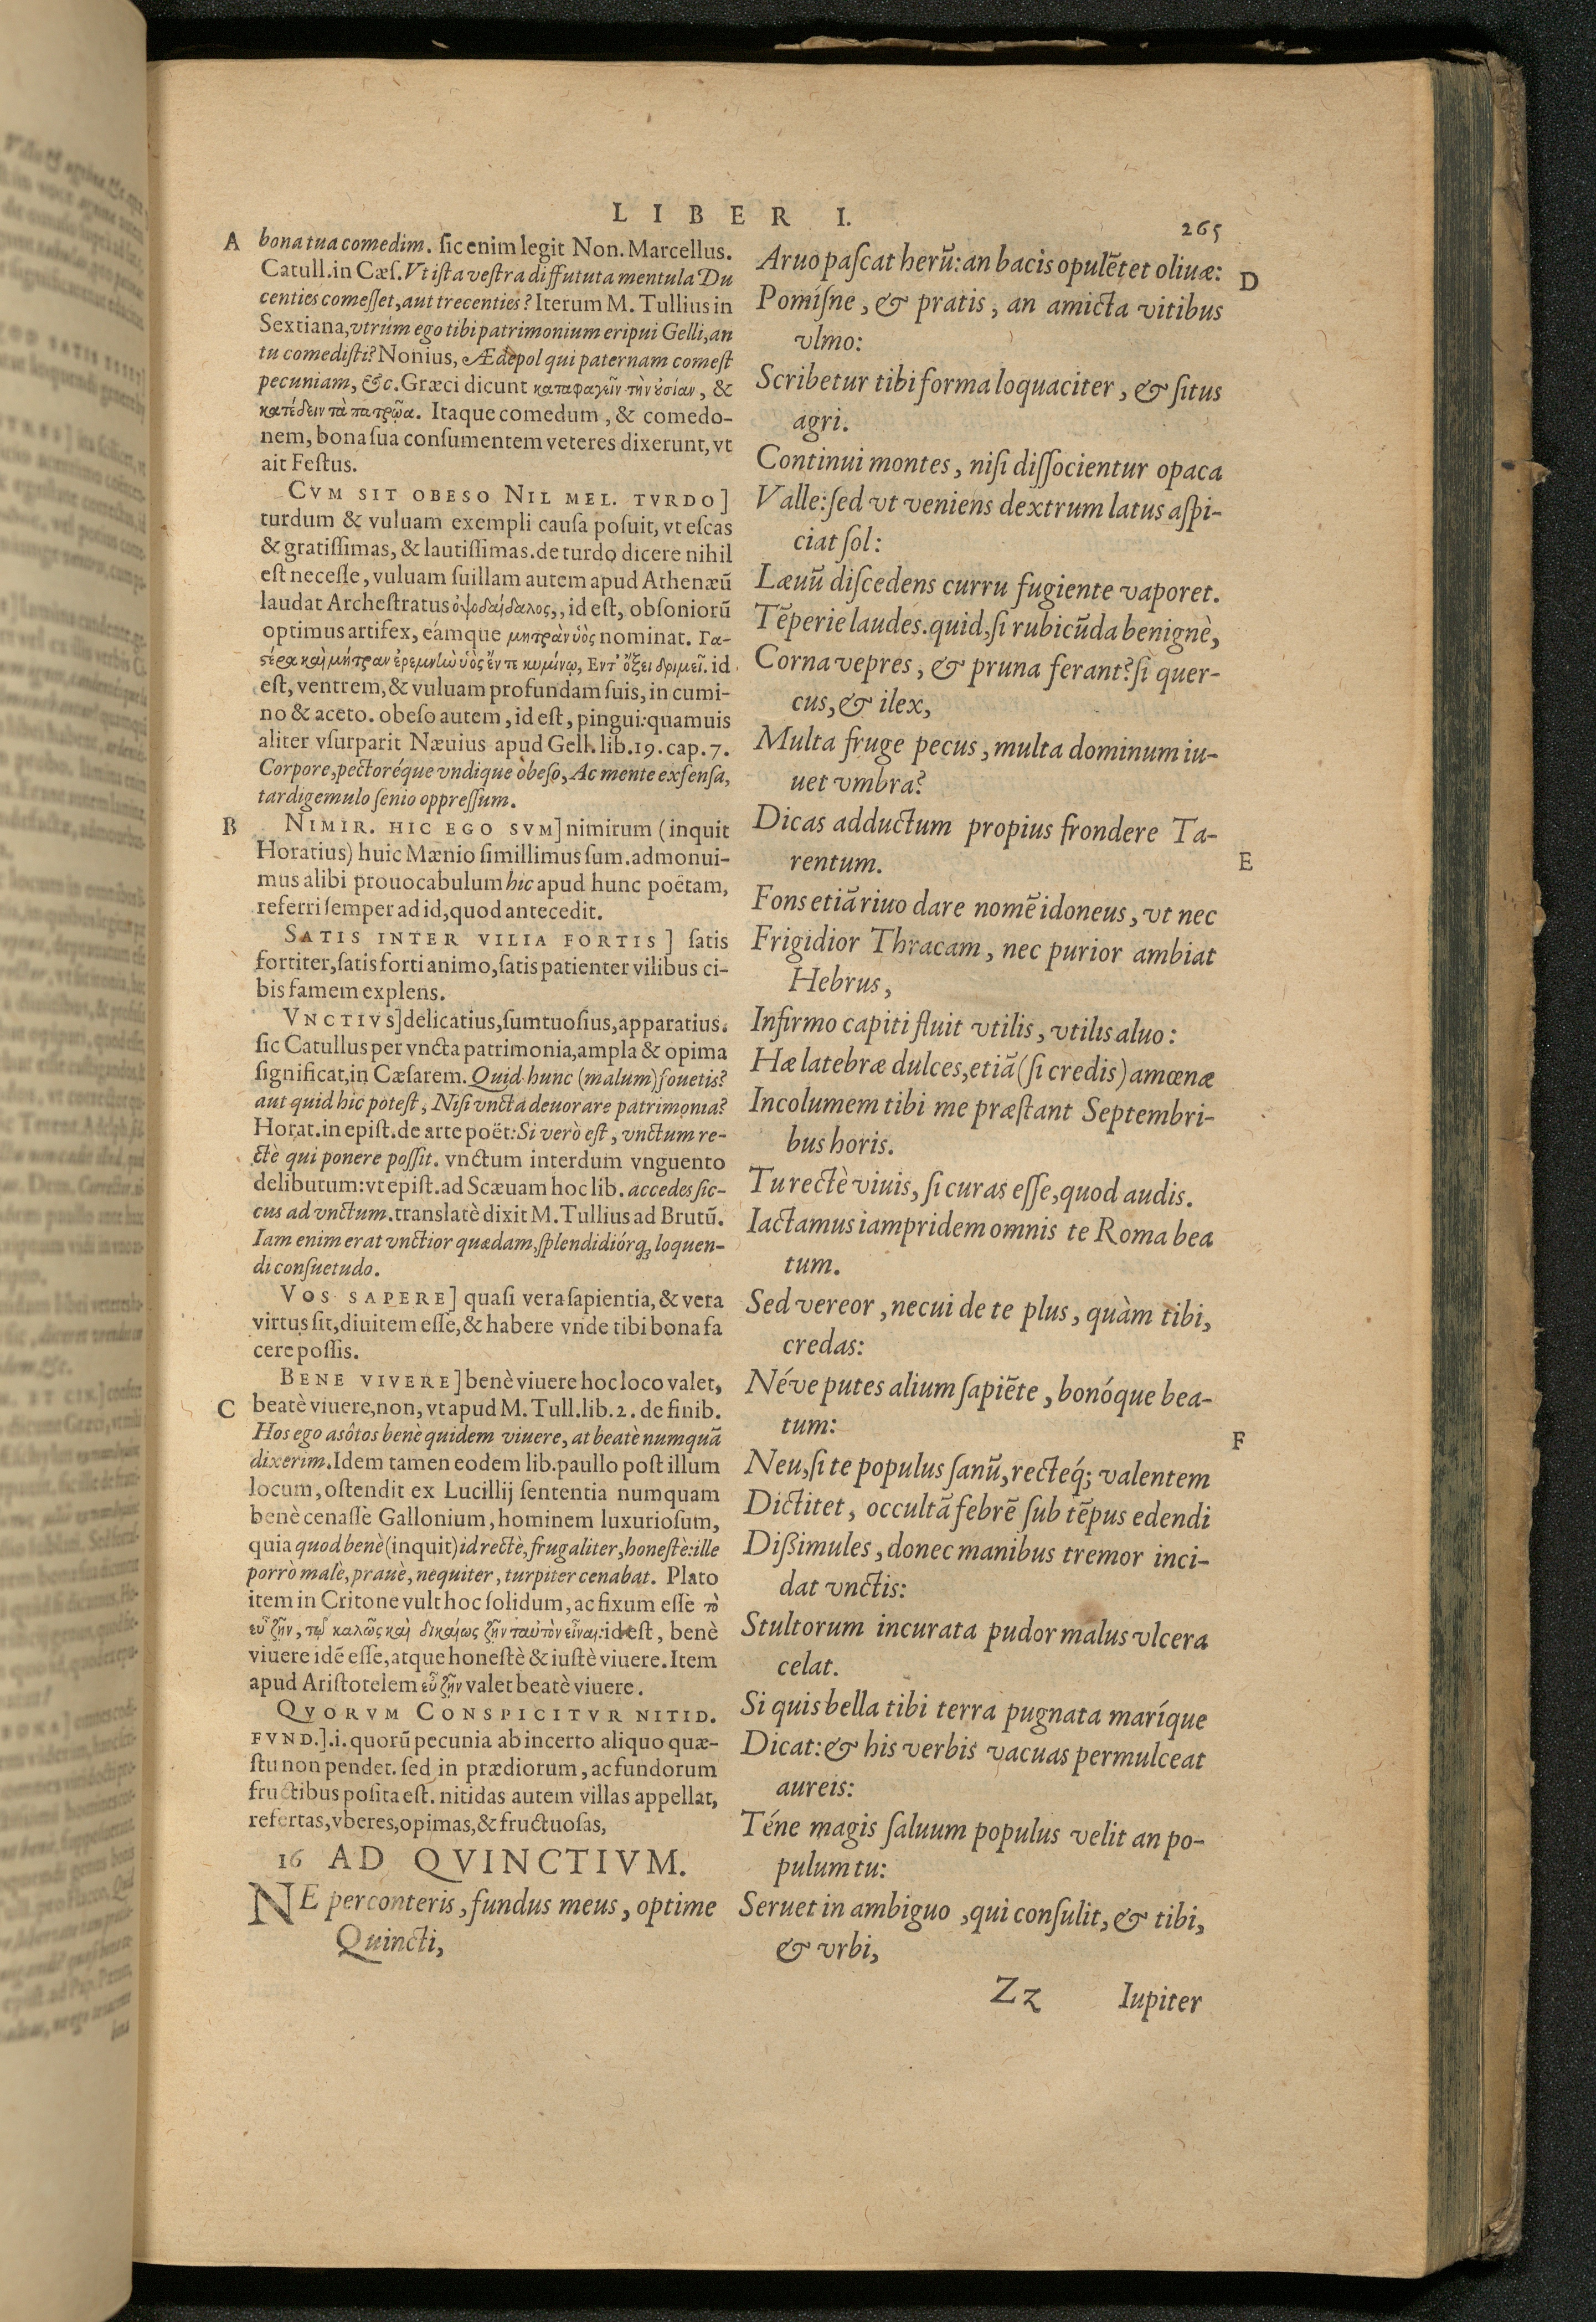 LIBER I.
265
A
bona tua comedim. ſic enim legit Non. Marcellus.
Catull. in Cæſ. Vt iſta veſtra diffututa mentula Du
centies comeſſet, aut trecenties? Iterum M. Tullius in
Sextiana, vtrúm ego tibi patrimonium eripui Gelli, an
tu comediſti? Nonius, Ædepol qui paternam comeſt
pecuniam, &c. Græci dicunt καταφαγεῖν τὴν ὐσίαν, &
κατέδειν τὰ πατρῷα. Itaque comedum, & comedo-
nem, bona ſua conſumentem veteres dixerunt, vt
ait Feſtus.
CVM SIT OBESO NIL MEL. TVRDO]
turdum & vuluam exempli cauſa poſuit, vt eſcas
& gratiſſimas, & lautiſſimas. de turdo dicere nihil
eſt neceſſe, vuluam ſuillam autem apud Athenæū
laudat Archeſtratus ὀψοδαίδαλος,, id eſt, obſoniorū
optimus artifex, eámque μητρὰν ὑὸς nominat. Γα-
ςέρα καὶ μήτραν ἐρεμνὴν ὑὸς ἔν τε κυμίνῳ, Εντ' ὄξει δριμεῖ. id
eſt, ventrem, & vuluam profundam ſuis, in cumi-
no & aceto. obeſo autem, id eſt, pingui: quamuis
aliter vſurparit Næuius apud Gell. lib. 19. cap. 7.
Corpore, pectoréque vndique obeſo, Ac mente exſenſa,
tardigemulo ſenio oppreſſum.
B
NIMIR. HIC EGO SVM] nimirum (inquit
Horatius) huic Mænio ſimillimus ſum. admonui-
mus alibi prouocabulum hic apud hunc poëtam,
referri ſemper ad id, quod antecedit.
SATIS INTER VILIA FORTIS] ſatis
fortiter, ſatis forti animo, ſatis patienter vilibus ci-
bis famem explens.
VNCTIVS] delicatius, ſumtuoſius, apparatius.
ſic Catullus per vncta patrimonia, ampla & opima
ſignificat, in Cæſarem. Quid hunc (malum) fouetis?
aut quid hic poteſt, Niſi vncta deuorare patrimonia?
Horat. in epiſt. de arte poët: Si verò eſt, vnctum re-
ctè qui ponere poſſit. vnctum interdum vnguento
delibutum: vt epiſt. ad Scæuam hoc lib. accedes ſic-
cus ad vnctum. translatè dixit M. Tullius ad Brutū.
Iam enim erat vnctior quædam, ſplendidiórq; loquen-
di conſuetudo.
VOS SAPERE] quaſi vera ſapientia, & vera
virtus ſit, diuitem eſſe, & habere vnde tibi bona fa
cere poſſis.
BENE VIVERE] benè viuere hoc loco valet,
C
beatè viuere, non, vt apud M. Tull. lib. 2. de finib.
Hos ego asôtos benè quidem viuere, at beatè numquā
dixerim. Idem tamen eodem lib. paullo poſt illum
locum, oſtendit ex Lucillij ſententia numquam
benè cenaſſe Gallonium, hominem luxurioſum,
quia quod benè (inquit) id rectè, frugaliter, honeſtè: ille
porrò malè, prauè, nequiter, turpiter cenabat. Plato
item in Critone vult hoc ſolidum, ac fixum eſſe τὸ
εὖ ζῆν, τῷ καλῶς καὶ δικαίως ζῆν ταὐτὸν εἶναι: id eſt, benè
viuere idē eſſe, atque honeſtè & iuſtè viuere. Item
apud Ariſtotelem εὖ ζῆν valet beatè viuere.
QVORVM CONSPICITVR NITID.
FVND.] .i. quorū pecunia ab incerto aliquo quæ-
ſtu non pendet. ſed in prædiorum, ac fundorum
fructibus poſita eſt. nitidas autem villas appellat,
refertas, vberes, opimas, & fructuoſas,
16 AD QVINCTIVM.
NE perconteris, fundus meus, optime
Quincti,
Aruo paſcat herū: an bacis opulētet oliuæ:
D
Pomíſne, & pratis, an amicta vitibus
vlmo:
Scribetur tibi forma loquaciter, & ſitus
agri.
Continui montes, niſi diſſocientur opaca
Valle: ſed vt veniens dextrum latus aſpi-
ciat ſol:
Læuū diſcedens curru fugiente vaporet.
Tēperie laudes. quid, ſi rubicūda benignè,
Corna vepres, & pruna ferant? ſi quer-
cus, & ilex,
Multa fruge pecus, multa dominum iu-
uet vmbra?
Dicas adductum propius frondere Ta-
rentum.
E
Fons etiā riuo dare nomē idoneus, vt nec
Frigidior Thracam, nec purior ambiat
Hebrus,
Infirmo capiti fluit vtilis, vtilis aluo:
Hæ latebræ dulces, etiā (ſi credis) amœnæ
Incolumem tibi me præſtant Septembri-
bus horis.
Tu rectè viuis, ſi curas eſſe, quod audis.
Iactamus iampridem omnis te Roma bea
tum.
Sed vereor, necui de te plus, quàm tibi,
credas:
Néve putes alium ſapiēte, bonóque bea-
tum:
F
Neu, ſi te populus ſanū, recteq́; valentem
Dictitet, occultā febrē ſub tēpus edendi
Diſſimules, donec manibus tremor inci-
dat vnctis:
Stultorum incurata pudor malus vlcera
celat.
Si quis bella tibi terra pugnata maríque
Dicat: & his verbis vacuas permulceat
aureis:
Téne magis ſaluum populus velit an po-
pulum tu:
Seruet in ambiguo, qui conſulit, & tibi,
& vrbi,
Zz
Iupiter